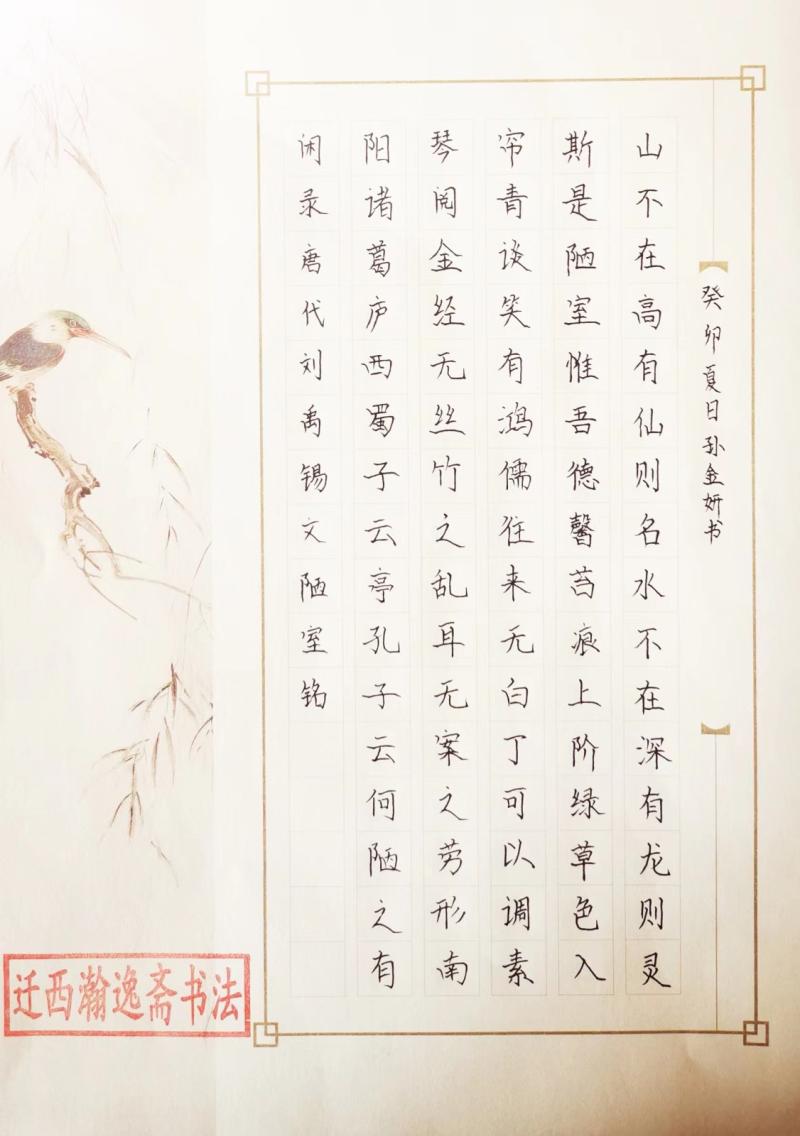 癸卯夏日孙金妍书
山不在高有仙则名水不在深有龙则灵
斯是陋室惟吾德馨苔痕上阶绿草色入
帘青谈笑有鸿儒往来无白丁可以调素
琴阅金经无丝竹之乱耳无案之劳形南
阳诸葛庐西蜀子云亭孔子云何陋之有
闲录唐代刘禹锡文陋室铭
迁西瀚逸斋书法